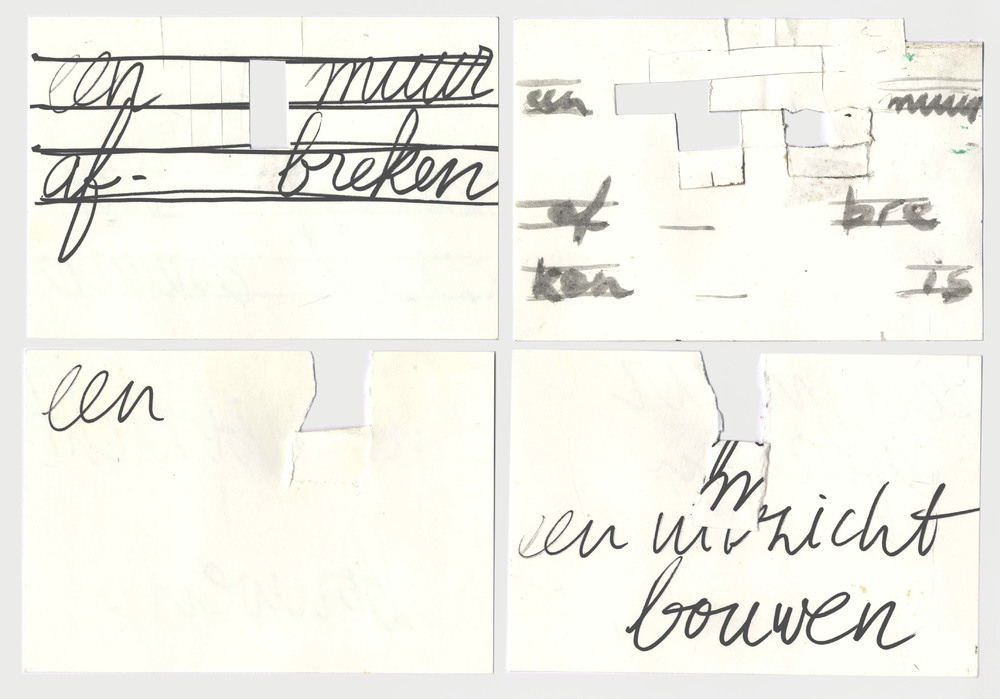 een muur
af- breken
een muur
af — bre
ken — is
een
en uitzicht
bouwen